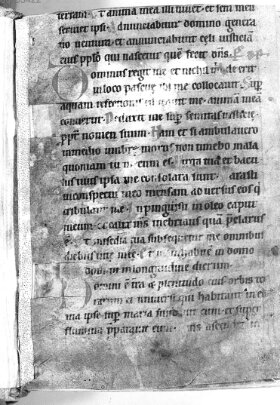 uerani. Et anima mea illi uiuet et semen meum
seruiet ipsi. Annunciabitur domino genera
tio uentura et annunciabunt celi iusticiā
eius pplo qui nascetur quē fecit dn̄s.
Dominus regit me et nichil m̄ de erit
in loco pascue ibi me collocauit. Sup
aquam refectionis educauit me animā meā
conuertit. Deduxit me sup semitas iusticie
ppt nomen suum. Nam et si ambulauero
in medio umbre mortis non timebo mala
quoniam tu mecum es. Uirga tua et bacu
lus tuus ipsa me consolata sunt. Parasti
in conspectu meo mensam aduersus eos q
tribulant me. Inpinguasti in oleo caput
meum et calix m̄s inebrians quā preclarus
Et misericdia tua subsequetur me omnibus
diebus uite mee. Et ut inhabitē in domo
domini in longitudine dierum.
Domini ē tr̄a et plenitudo eius orbis ter
rarum et uniuersi qui habitant in eo
ipse sup maria fundauit eum et super
flumina pparauit eum.